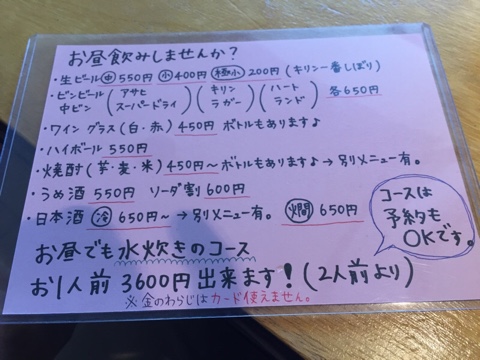 お昼飲みしませんか？
・生ビール 中 550円 小 400円 極小 200円 (キリン一番しぼり)
・ビンビール 中ビン (アサヒ スーパードライ) (キリン ラガー) (ハート ランド) 各650円
・ワイン グラス (白・赤) 450円 ボトルもあります♪
・ハイボール 550円
・焼酎 (芋・麦・米) 450円〜 ボトルもあります♪ → 別メニュー有。
・うめ酒 550円 ソーダ割 600円
・日本酒 冷 650円〜 → 別メニュー有。 燗 650円
お昼でも水炊きのコース
お1人前 3600円 出来ます！ (2人前より)
※金のわらじはカード使えません。
コースは
予約も
OKです。